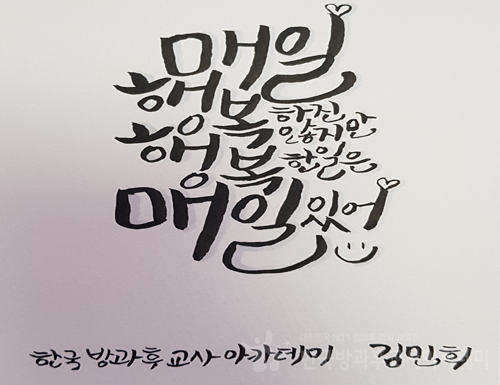 매일
행복하진 않지만
행복한일은
매일있어
한국방과후교사아카데미 김민희